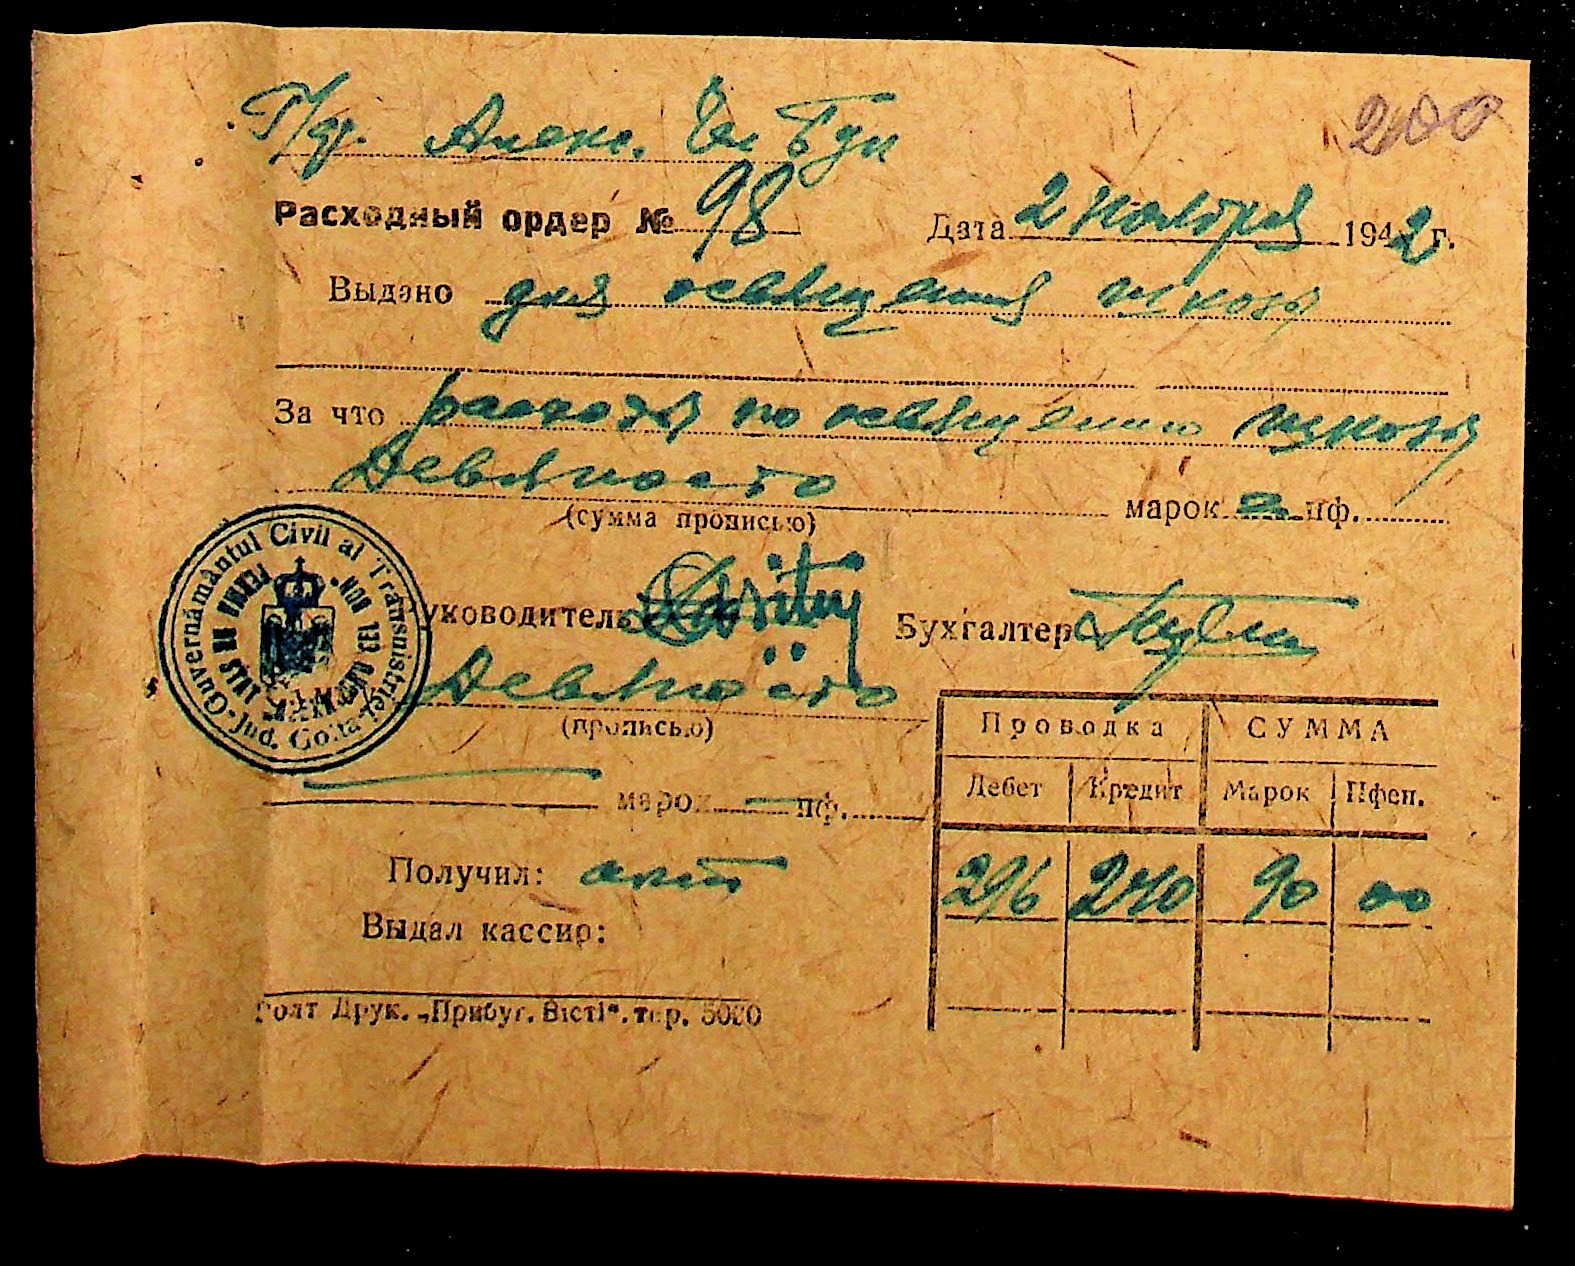 200
Расходный ордер № 98 Дата 2 ноября 1942 г.
Выдано для освящения школы
За что расходы по освящению школы
Девяносто марок пф.
(сумма прописью)
Guvernământul Civil al Transnistriei
Jud. Golta
уководитель Бухгалтер
Девяносто
(прописью)
марок — пф.
Проводка СУММА
Дебет Кредит Марок Пфен.
296 240 90 00
Получил: акт
Выдал кассир:
Голт Друк. „Прибуг. Вісті“. тир. 5000